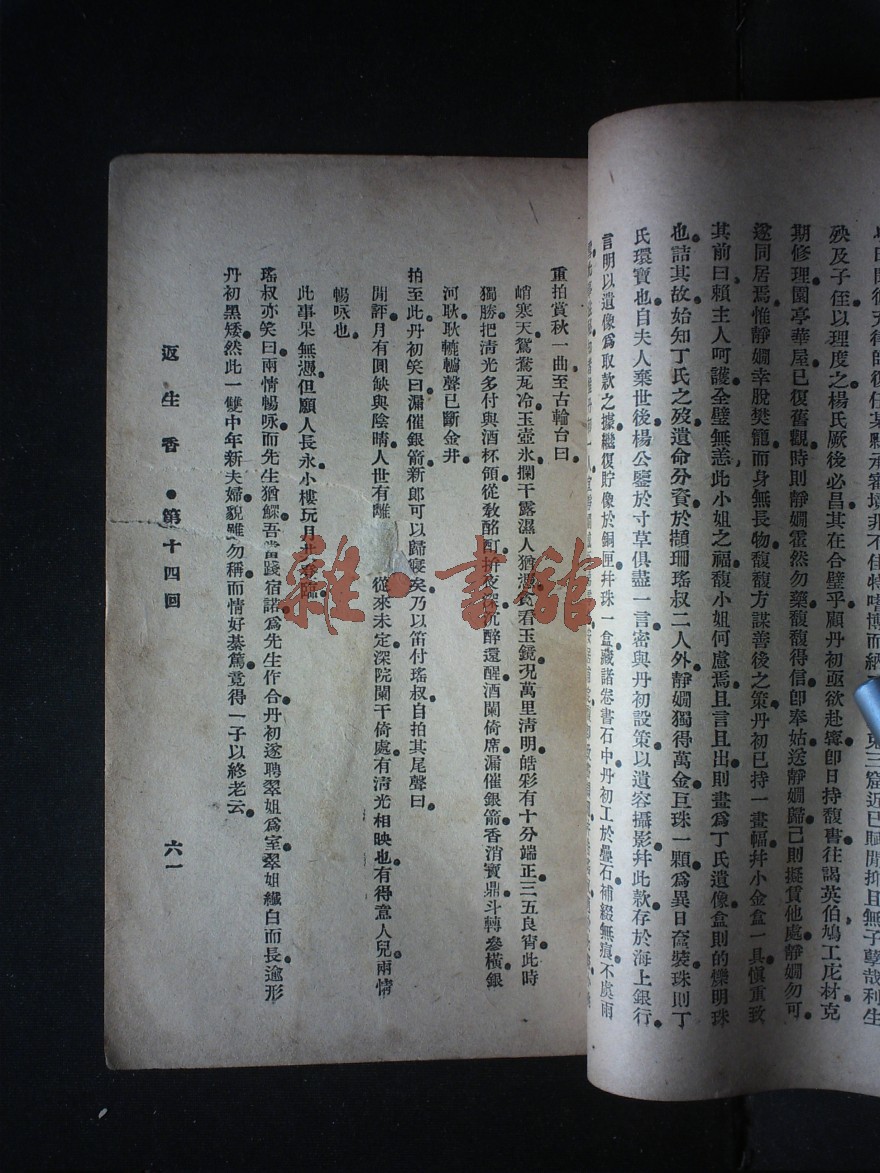 殃及子侄以理度之楊氏厥後必昌其在合璧乎顧丹初亟欲赴寗卽日持馥書往謁英伯鳩工庀材克
期修理園亭華屋已復舊觀時則靜嫺霍然勿藥馥馥得信卽奉姑送靜嫺歸己則擬賃他處靜嫺勿可
遂同居焉惟靜嫺幸脫樊籠而身無長物馥馥方謀善後之策丹初已持一畫幅幷小金盒一具愼重致
其前曰賴主人呵護全璧無恙此小姐之福馥小姐何慮焉且言且出則畫爲丁氏遺像盒則的爍明珠
也詰其故始知丁氏之歿遺命分資於擷珊瑤叔二人外靜嫺獨得萬金巨珠一顆爲異日奩裝珠則丁
氏環寶也自夫人棄世後楊公鑒於寸草俱盡一言密與丹初設策以遺容攝影幷此款存於海上銀行
言明以遺像爲取款之據繼復貯像於銅匣幷珠一盒藏諸卷書石中丹初工於壘石補綴無痕不虞雨
重拍賞秋一曲至古輪台曰
峭寒天鴛鴦瓦冷玉壺氷闌干露濕人猶憑貪看玉鏡况萬里淸明皓彩有十分端正三五良宵此時
獨勝把淸光多付與酒杯領從敎酩酊拚夜深沉醉還醒酒闌倚席漏催銀箭香消寶鼎斗轉參橫銀
河耿耿轆轤聲已斷金井
拍至此丹初笑曰漏催銀箭新郎可以歸寢矣乃以笛付瑤叔自拍其尾聲曰
閒評月有圓缺與陰晴人世有離 從來未定深院闌干倚處有淸光相映也有得意人兒兩情
暢咏也
此事果無憑但願人長永小樓玩月共登臨
瑤叔亦笑曰兩情暢咏而先生猶鰥吾當踐宿諾爲先生作合丹初遂聘翠姐爲室翠姐纖白而長逾形
丹初黑矮然此一雙中年新夫婦貌雖勿稱而情好綦篤竟得一子以終老云
返生香 第十四回 六一
雜·書館